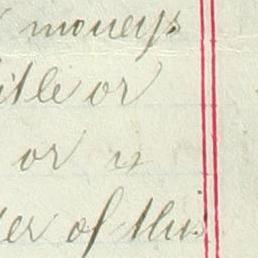 moneys
title or
or is
er of this